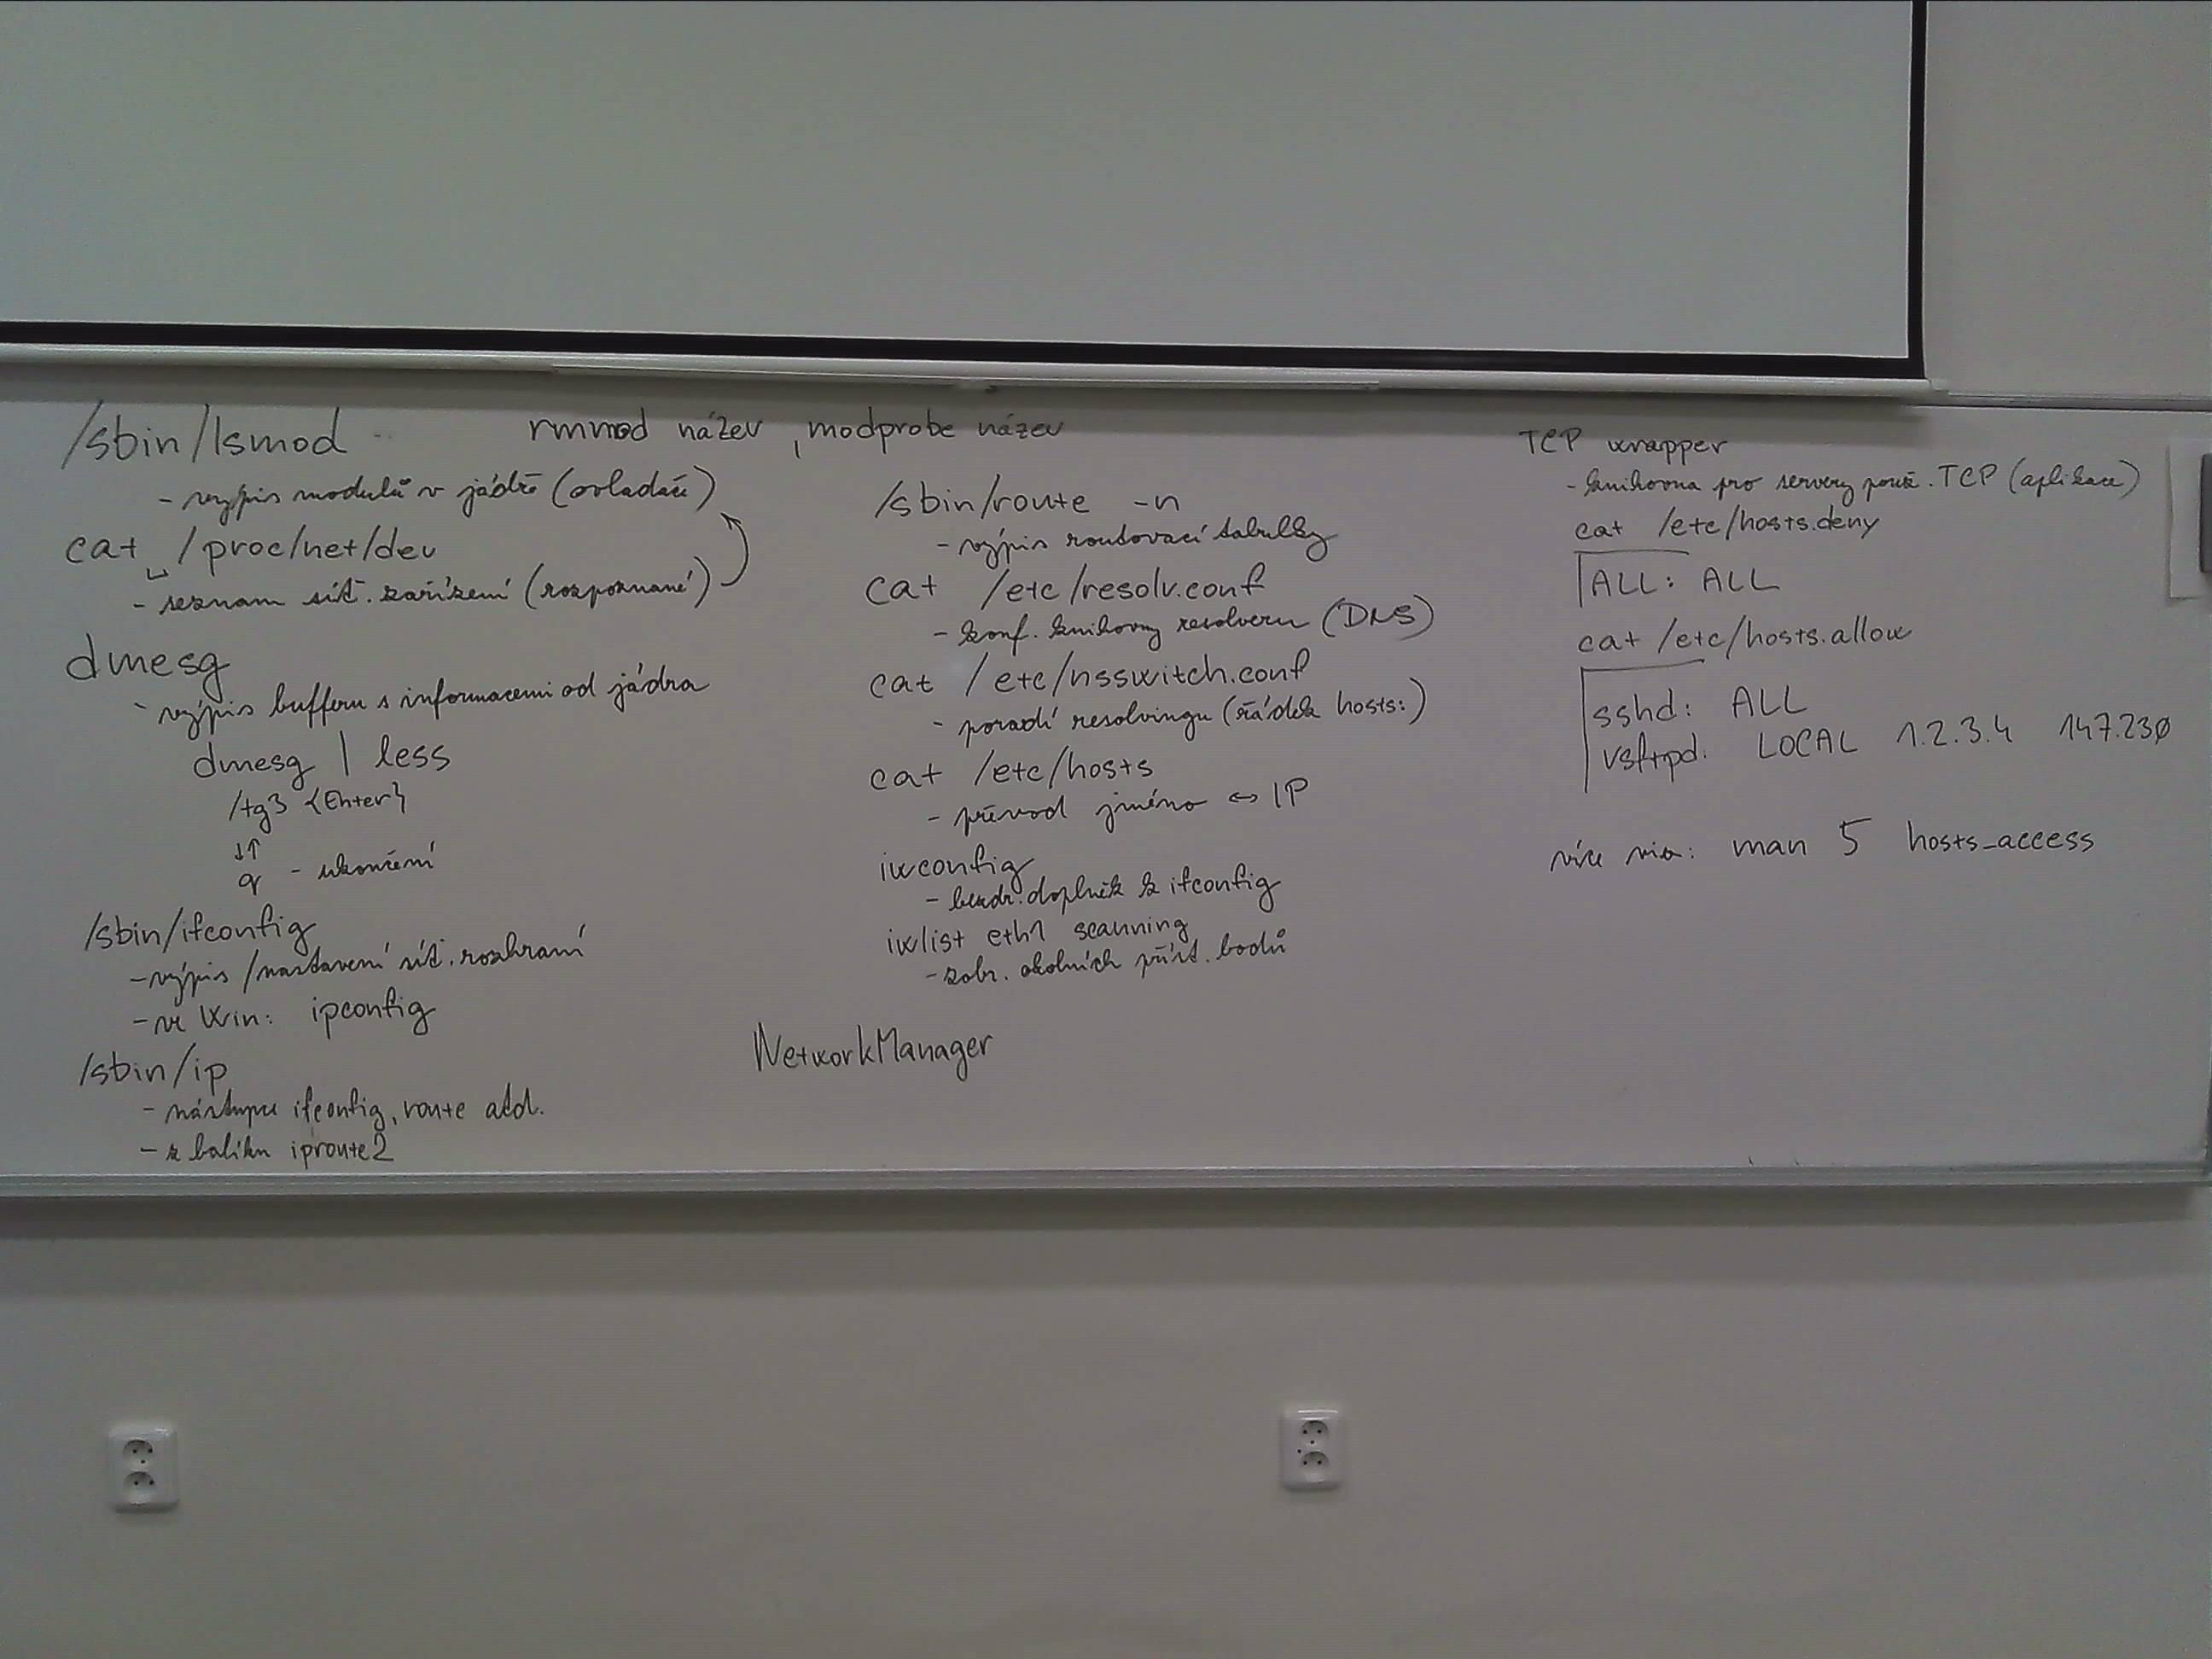 /sbin/lsmod
rmmod název, modprobe název
- výpis modulů v jádře (ovladače)
cat ␣ /proc/net/dev
- seznam síť. zařízení (rozpoznané)
dmesg
- výpis bufferu s informacemi od jádra
dmesg | less
/tg3 {Enter}
↓↑
q - ukončení
/sbin/ifconfig
- výpis /nastavení síť. rozhraní
- ve Win: ipconfig
/sbin/ip
- nástupce ifconfig, route atd.
- z balíku iproute2
/sbin/route -n
- výpis routovací tabulky
cat /etc/resolv.conf
- konf. knihovny resolveru (DNS)
cat /etc/nsswitch.conf
- poradí resolvingu (řádek hosts:)
cat /etc/hosts
- převod jméno ↔ IP
iwconfig
- bezdr. doplněk k ifconfig
iwlist eth1 scanning
- zobr. okolních příst. bodů
NetworkManager
TCP wrapper
- knihovna pro servery použ. TCP (aplikace)
cat /etc/hosts.deny
ALL: ALL
cat /etc/hosts.allow
sshd: ALL
vsftpd: LOCAL 1.2.3.4 147.230
více viz: man 5 hosts_access